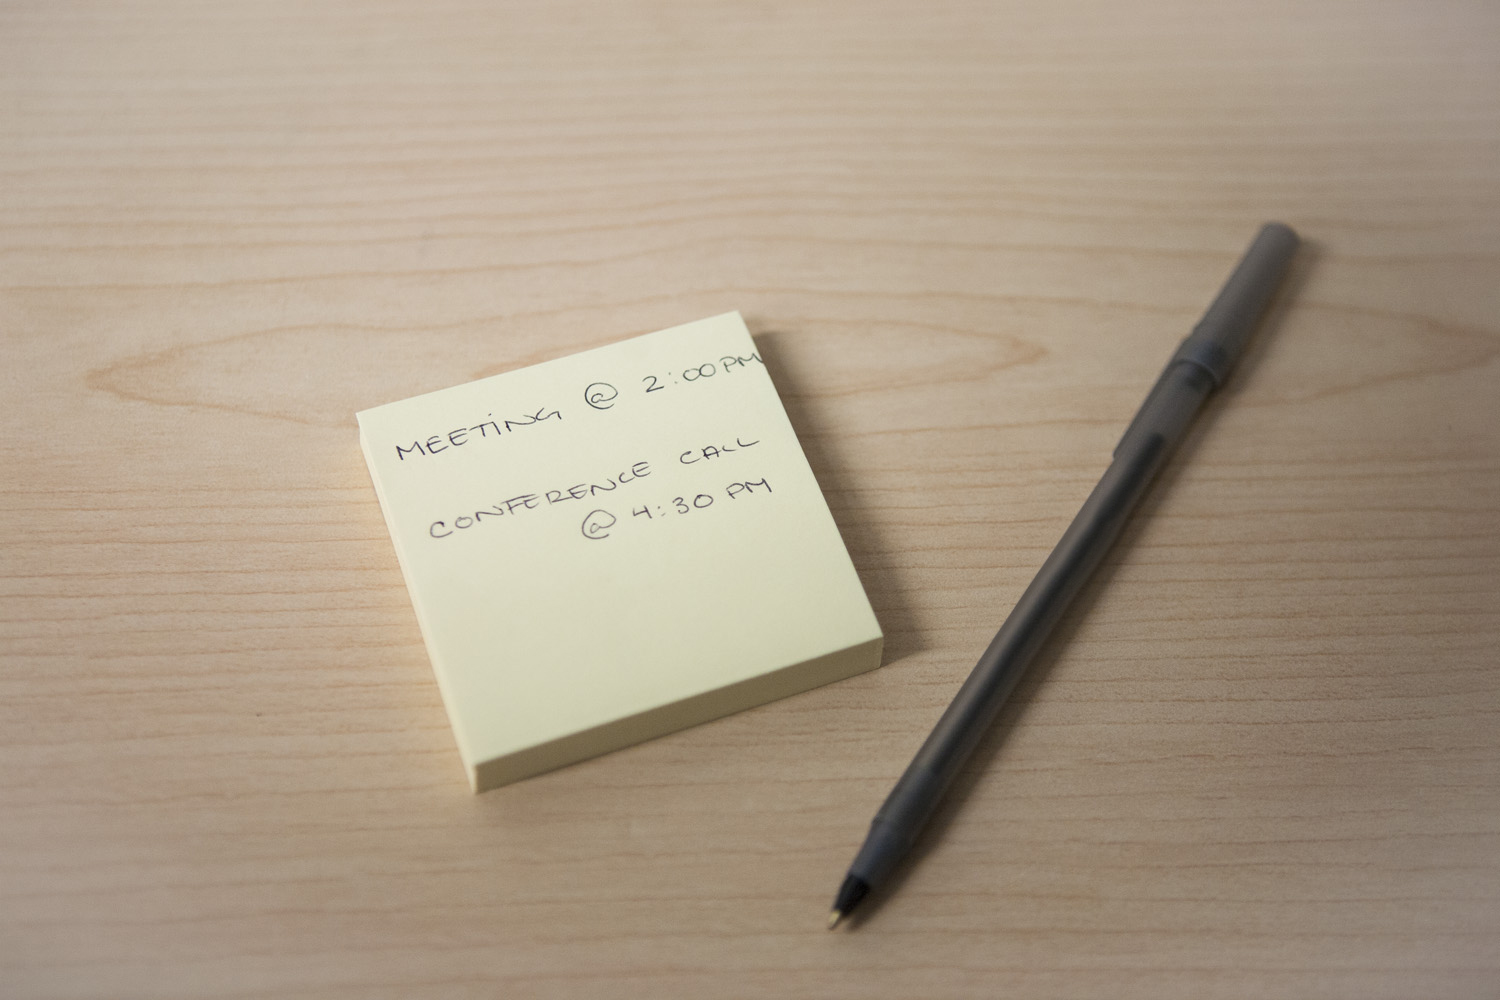 MEETiNG @ 2:00PM
CONFERENCE CALL
@ 4:30 PM